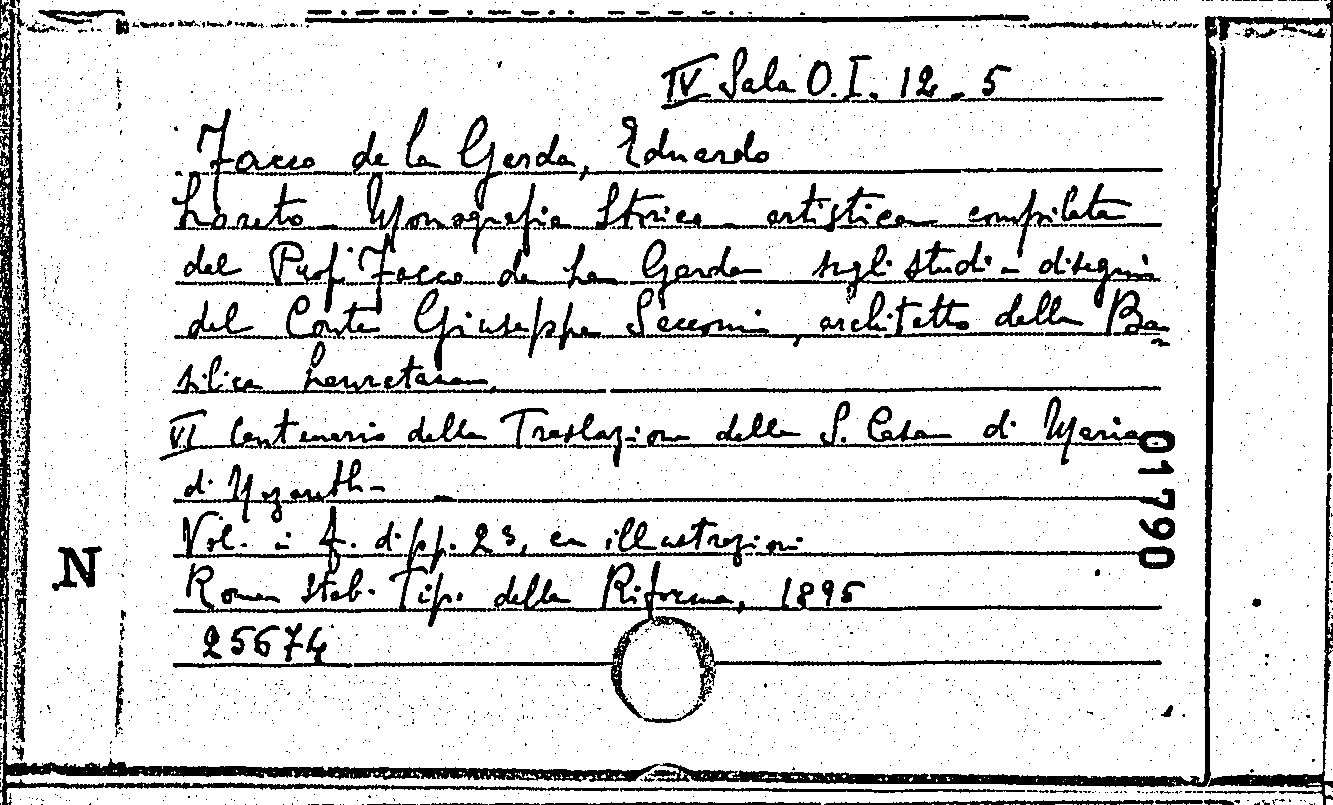 IV Sala O.I. 12 - 5
Facco de la Garda, Eduardo
Loreto - Monografia Storico - artistica compilata
dal Prof. Facco de La Garda sugli studi - disegni
del Conte Giuseppe Sacconi, architetto della Ba-
silica Lauretana.
VI Centenario della Traslazione della S. Casa di Maria
di Nazareth -
Vol. in f. di pp. 23, con illustrazioni
Roma Stab. Tip. della Riforma, 1895
25674
N
01790